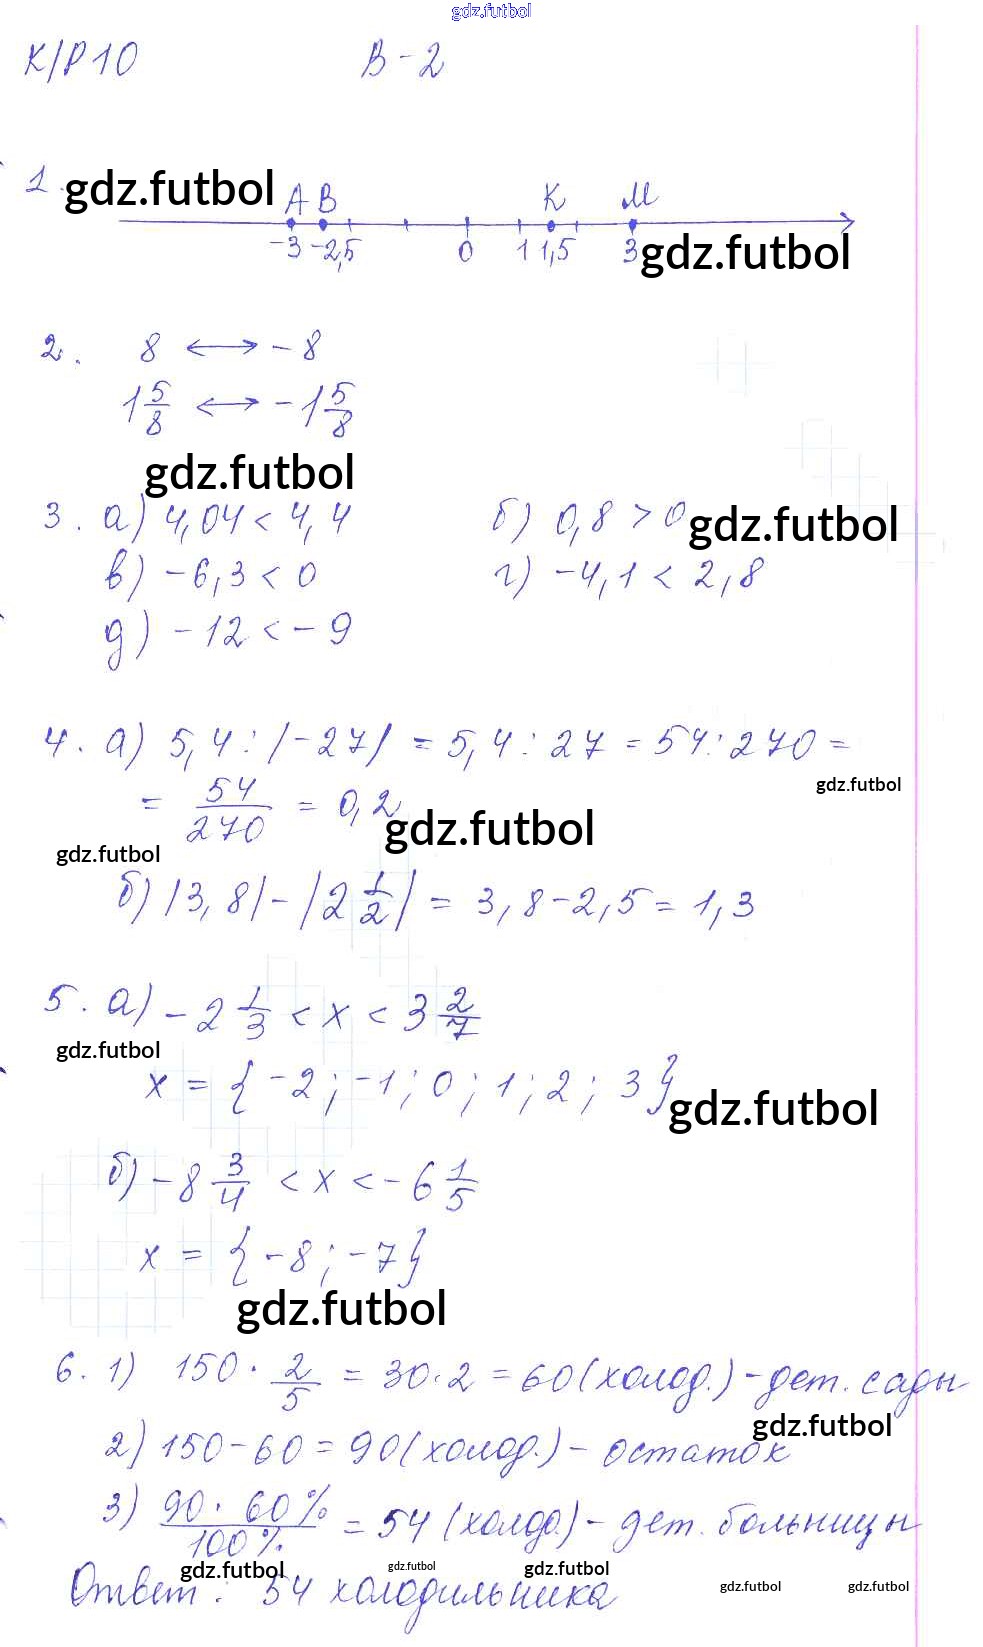 gdz.futbol
К/Р10 В-2
1. gdz.futbol А В К М
-3 -2,5 0 1 1,5 3 gdz.futbol
2. 8 ⟷ -8
1 5/8 ⟷ -1 5/8
gdz.futbol
3. а) 4,04 < 4,4 б) 0,8 > 0 gdz.futbol
в) -6,3 < 0 г) -4,1 < 2,8
д) -12 < -9
4. а) 5,4 : |-27| = 5,4 : 27 = 54 : 270 =
gdz.futbol
= 54/270 = 0,2 gdz.futbol
gdz.futbol
б) |3,8| - |2 1/2| = 3,8 - 2,5 = 1,3
5. а) -2 1/3 < х < 3 2/7
gdz.futbol
х = {-2; -1; 0; 1; 2; 3} gdz.futbol
б) -8 3/4 < х < -6 1/5
х = {-8; -7}
gdz.futbol
6. 1) 150 · 2/5 = 30·2 = 60 (холод.) - дет. сады
gdz.futbol
2) 150 - 60 = 90 (холод.) - остаток
3) 90 · 60% / 100% = 54 (холод.) - дет. больницы
gdz.futbol gdz.futbol gdz.futbol
Ответ: 54 холодильника gdz.futbol gdz.futbol